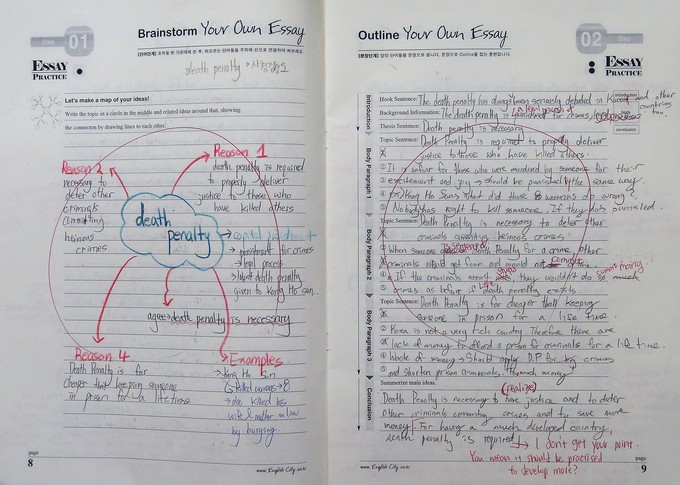 Step 01
Brainstorm Your Own Essay
ESSAY
PRACTICE
death penalty → 사형제도
Let's make a map of your ideas!
Write the topic in a circle in the middle and related ideas around that, showing
the connection by drawing lines to each other!
Reason 1
death penalty is required
to properly deliver
justice to those who
have killed others
Reason 2
necessary to
deter other
criminals
committing
heinous
crimes
death
penalty
→ capital punishment
→ punishment for crimes
→ legal process
→ latest death penalty
given to Kang Ho sun.
agree → death penalty is necessary
Reason 4
Death Penalty is far
cheaper that keeping someone
in prison for a life time
Examples
→ Kang Ho Sun
killed women → 8
→ also killed his
wife & mother in law
by burying
page
8
www.EnglishCity.co.kr
Outline Your Own Essay
02 Step
ESSAY
PRACTICE
Introduction
Hook Sentence: The death penalty has always been seriously debated in Korea and other
countries
too.
Background Information: The death penalty is punishment for crimes,
a legal process of
Thesis Sentence: Death penalty is necessary
introduction
conclusion
Body Paragraph 1
Topic Sentence: Death Penalty is required to properly deliver
justice to those who have killed others.
② It is unfair for those who were murdered by someone for their
③ excitement and joy → should be punished the same way.
④ ex) Kang Ho Sun: what did those 8 women do wrong?
⑤ Nobody has right to kill someone. If they do → punished.
Body Paragraph 2
Topic Sentence: Death Penalty is necessary to deter other
criminals commiting heinous crimes.
② When someone Death Penalty for a crime, other
③ criminals would get fear and would not commit crime.
④ If the criminals aren't stupid, they wouldn't do so much
so many
⑤ crimes as before if death penalty exists
Body Paragraph 3
Topic Sentence: Death Penalty is far cheaper than keeping
someone in prison for a life time.
② Korea is not a very rich country. Therefore there are
③ lack of money to afford a prison for criminals for a life time.
④ lack of money → Should apply D.P for big crimes
⑤ and shorten prison criminals.
Conclusion
Summarize main ideas.
(realize)
Death Penalty is necessary to have justice and to deter
other criminals commiting crimes and to save more
money. For having a much developed country,
death penalty is required.
→ I don't get your point.
You mean it should be practised
to develop more?
www.EnglishCity.co.kr
page
9